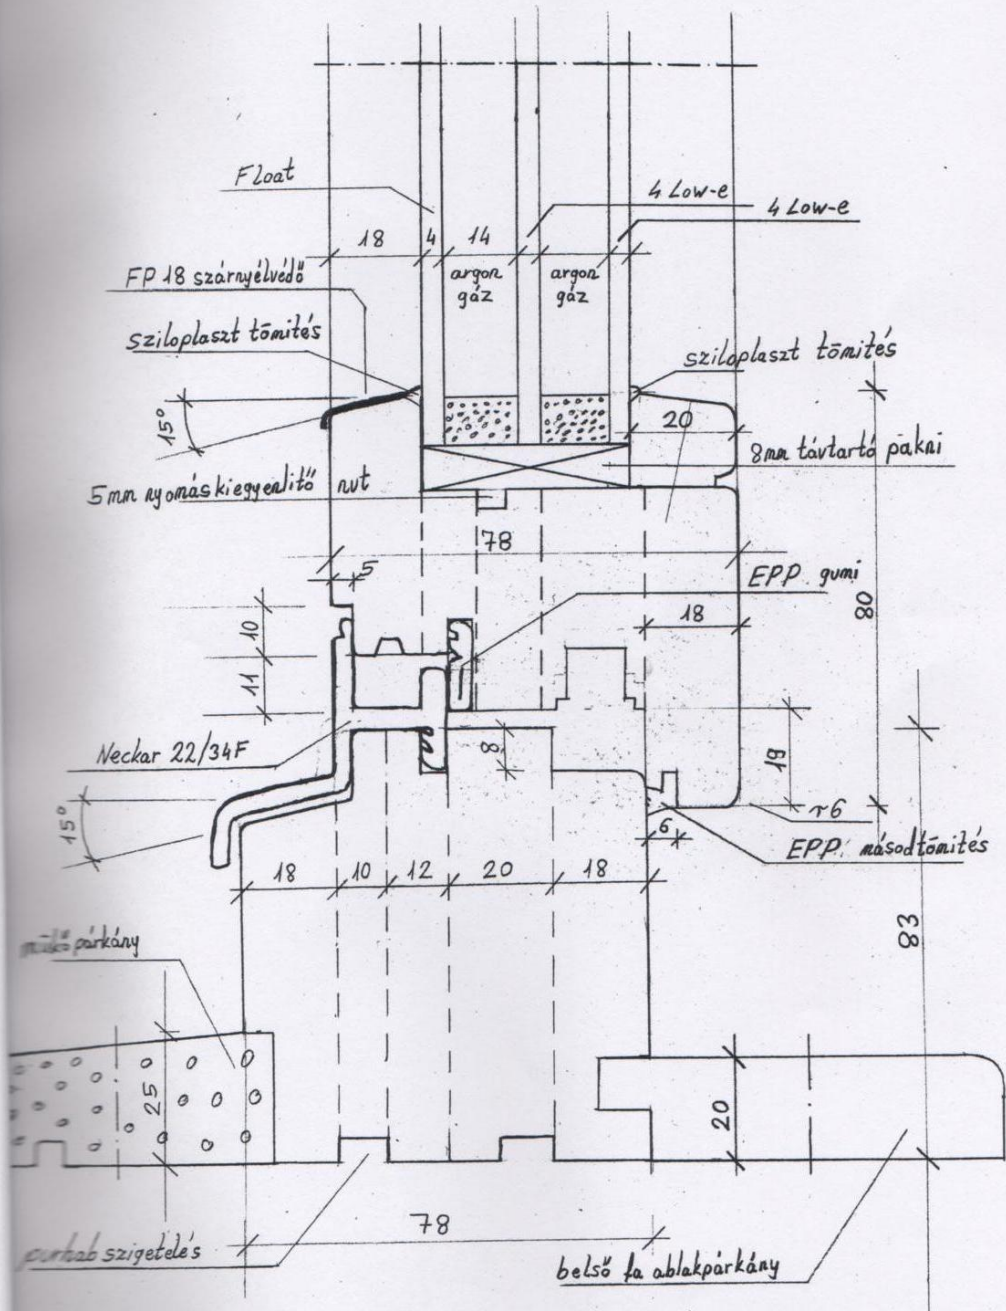 Float
4 Low-e
4 Low-e
18
4
14
argon
gáz
argon
gáz
FP 18 szárnyélvédő
sziloplaszt tömítés
sziloplaszt tömítés
15°
20
8mm távtartó pakni
5mm nyomáskiegyenlítő nut
78
5
EPP gumi
10
18
80
11
Neckar 22/34F
8
19
15°
r6
6
EPP. másodtömítés
18
10
12
20
18
83
műkőpárkány
25
20
78
purhab szigetelés
belső fa ablakpárkány